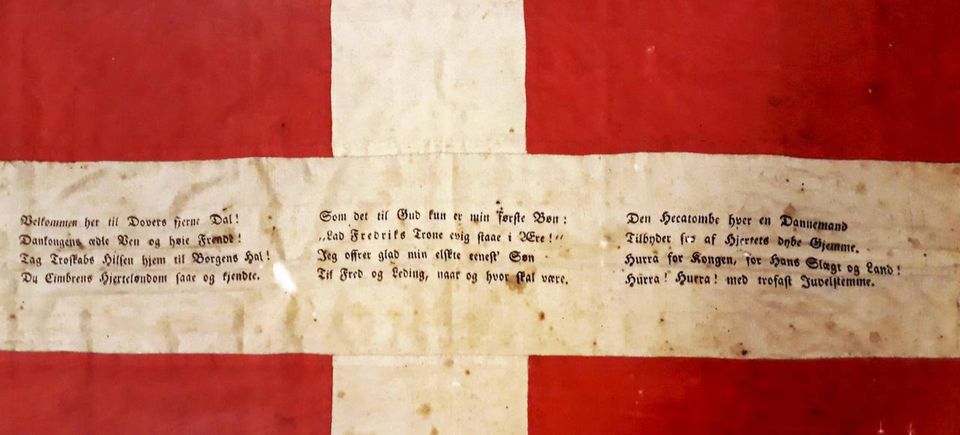 Velkommen her til Dovers fjerne Dal!
Dankongens ædle Ven og høie Frende!
Tag Troskabs Hilsen hjem til Borgens Hal!
Du Cimbrens Hjerteløndom saae og kjendte.
Som det til Gud kun er min første Bøn:
„Lad Fredriks Trone evig staae i Ære!“
Jeg offrer glad min elskte eenest' Søn
Til Fred og Leding, naar og hvor skal være.
Den Hecatombe hver en Dannemand
Tilbyder fro af Hjertets dybe Gjemme.
Hurra for Kongen, for Hans Slægt og Land!
Hurra! Hurra! med trofast Juvelstemme.